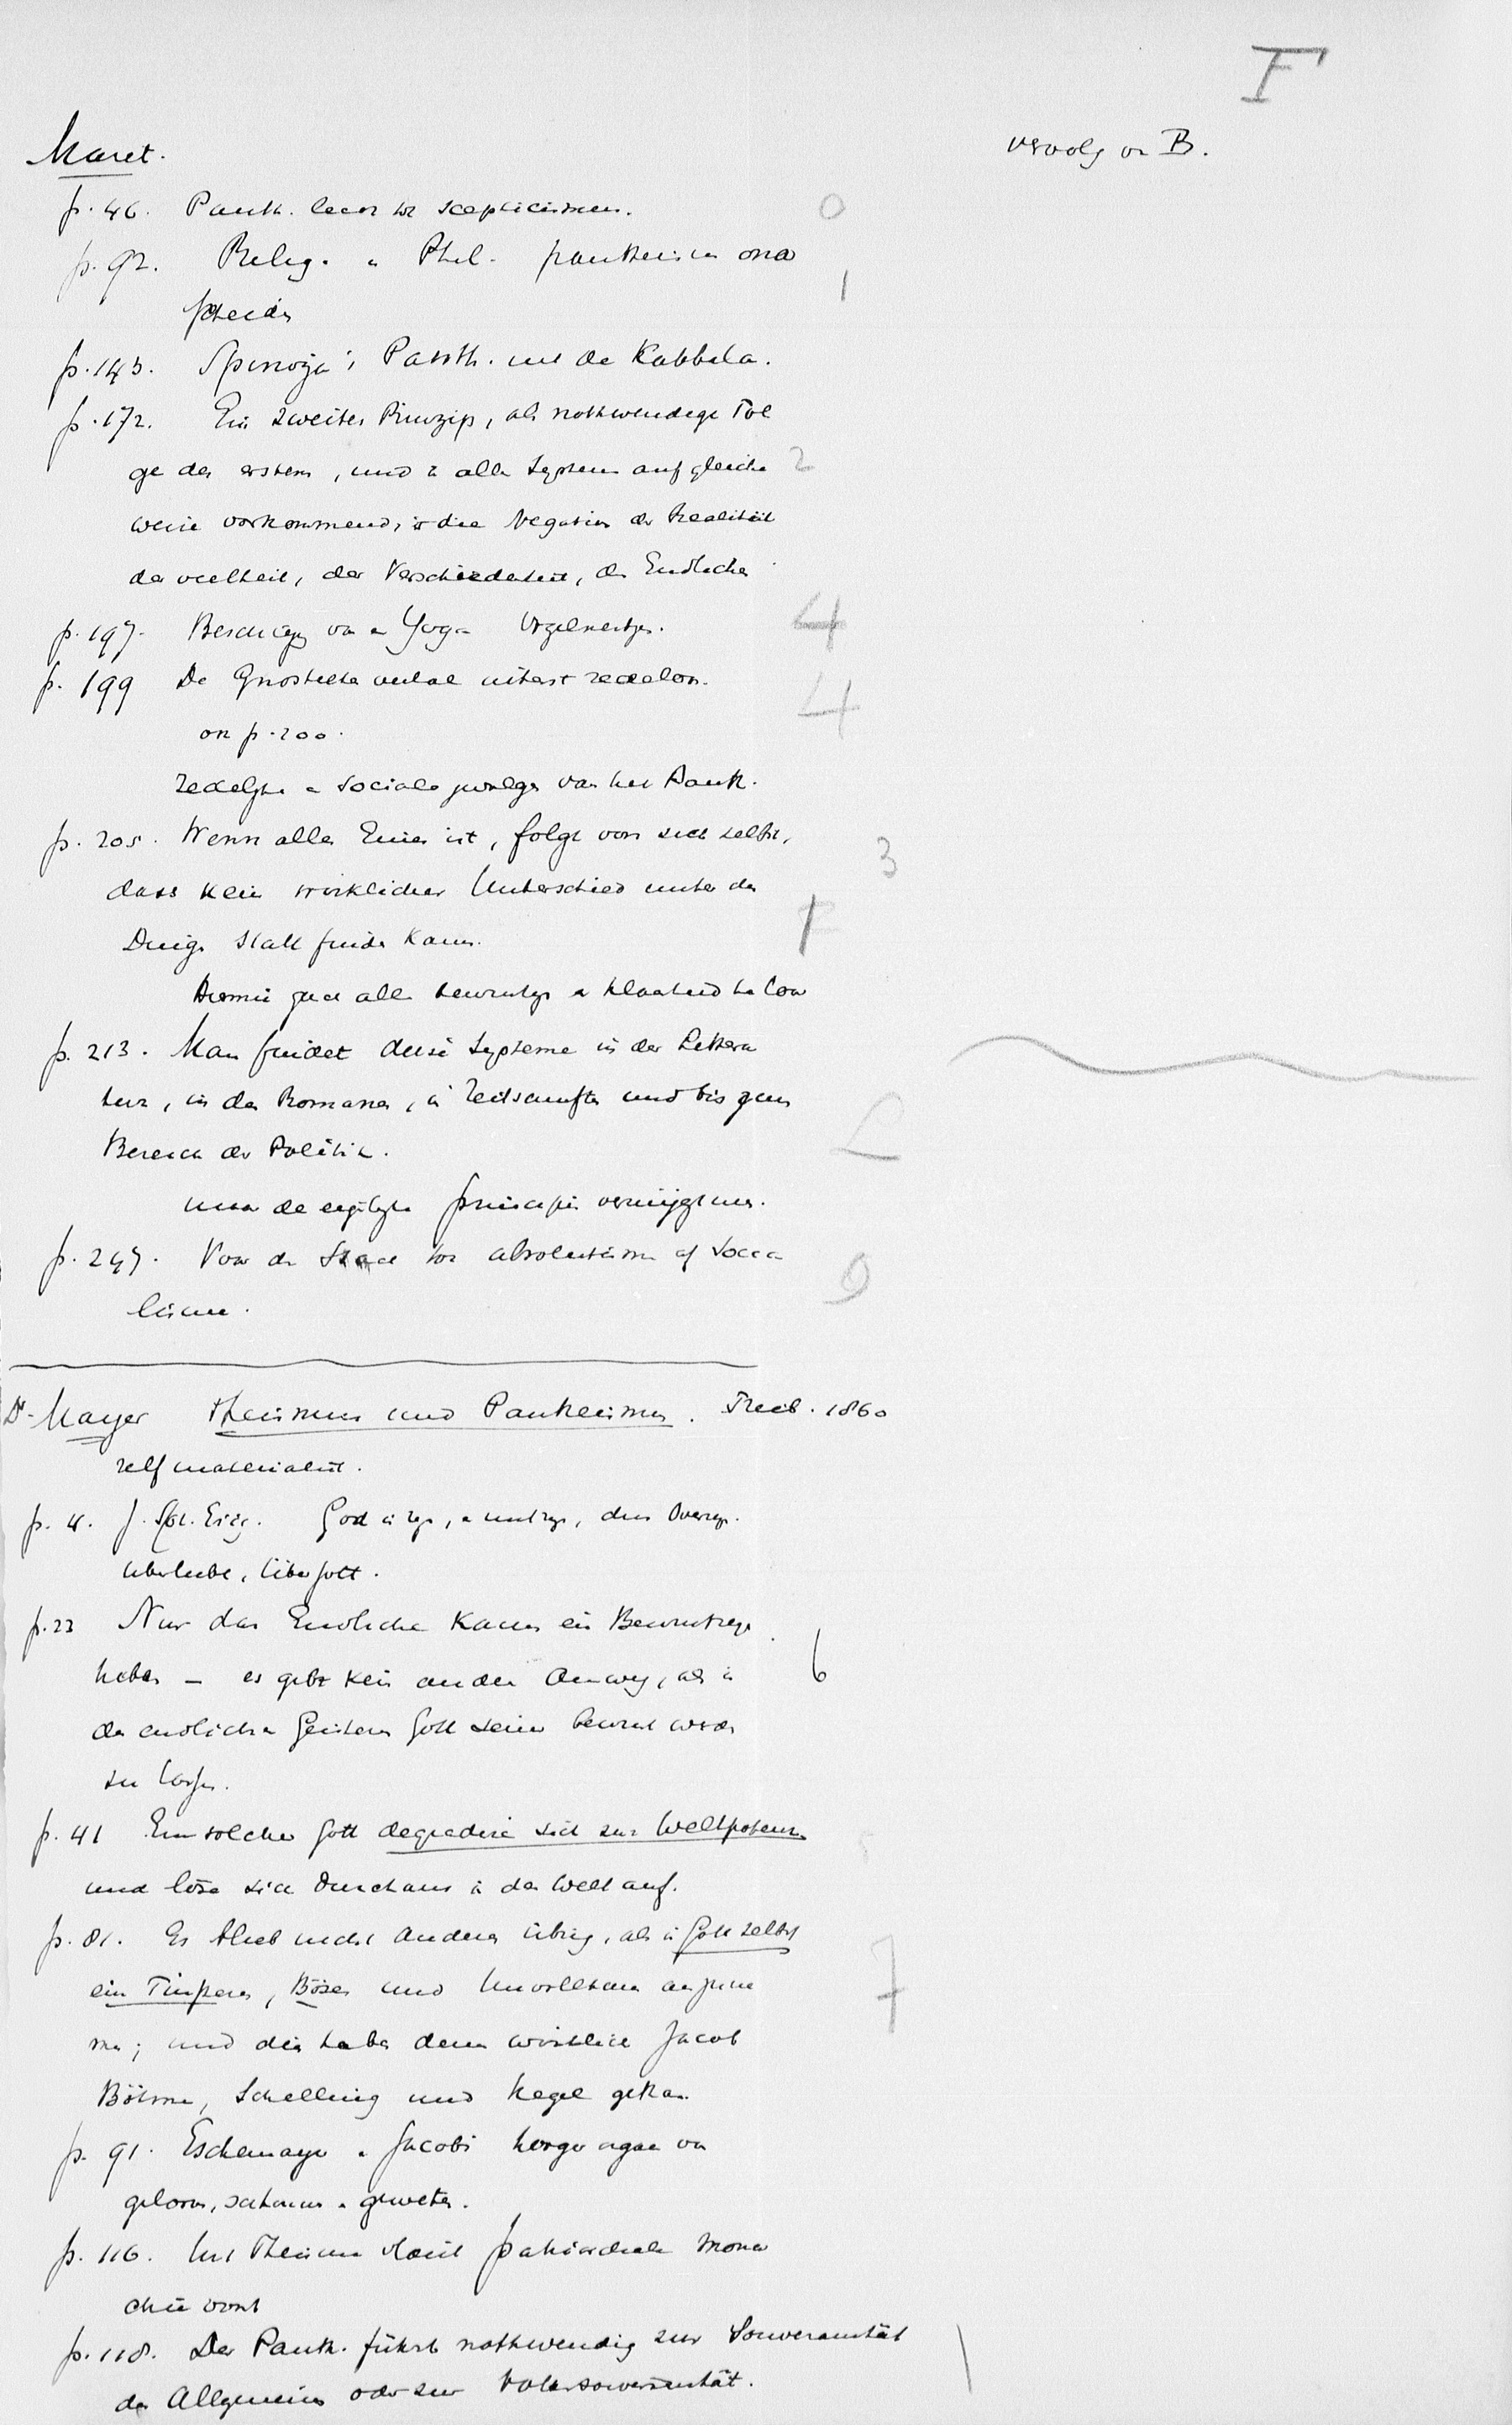 F
vervolg v. B.
Maret.
p. 46. Panth. leert tot scepticismen.
p. 92. Relig. & Phil. pantheisten
scheiden
p. 143. Spinoza's Panth. uit de Kabbala.
p. 172. Ein zweites Prinzip, als nothwendige Fol
ge des ersten, und in allen Systemen auf gleiche
Weise vorkommend, ist die Negation der Realität
der Vielheit, der Verschiedenheit, des Endlichen
p. 197. van Yoga
p. 199 De Gnostieken uiterst zedeloos.
ook p. 200.
Zedelijke & sociale gevolgen van het Panth.
p. 205. Wenn alles Eines ist, folgt von sich selbst,
dass kein wirklicher Unterschied unter den
Dingen statt finden kann.
Hiermee gaat alle bewustzijn & klaarheid te loor
p. 213. Man findet diese Systeme in der Littera
tur, in den Romanen, in Zeitschriften und bis zum
Bereich der Politik.
maar de principes
p. 247. Voor de Staat tot absolutisme of socia
lisme.
Dr. Mayer Theismus und Pantheismus. Freib. 1860
zelf materialist.
p. 4. J. Sc. Erig. God is zijn, & niet zijn, dus Overzijn.
überliebe, übergott.
p. 22 Nur das Endliche kann ein Bewustsein
haben — es gebe kein andern Ausweg, als in
den endlichen Geistern Gott seiner bewust werden
zu lassen.
p. 41 Ein solcher Gott degradire sich zur Weltpotenz
und löse sich durchaus in der Welt auf.
p. 81. Es blieb nicht Anderes übrig, als in Gott selbst
ein Finsteres, Böses und Unvollkom anzuneh
men; und dies haben denn wirklich Jacob
Böhme, Schelling und Hegel gethan.
p. 91. Eschemayer & Jacobi
gelooven, schouwen & geweten.
p. 116. Uit Theisme vloeit patriarchale monar
chie voort
p. 118. Der Panth. führt nothwendig zur Souveranität
des Allgemeinen oder zur Volkssouveränität.
0
1
2
4
4
3
L
9
6
7